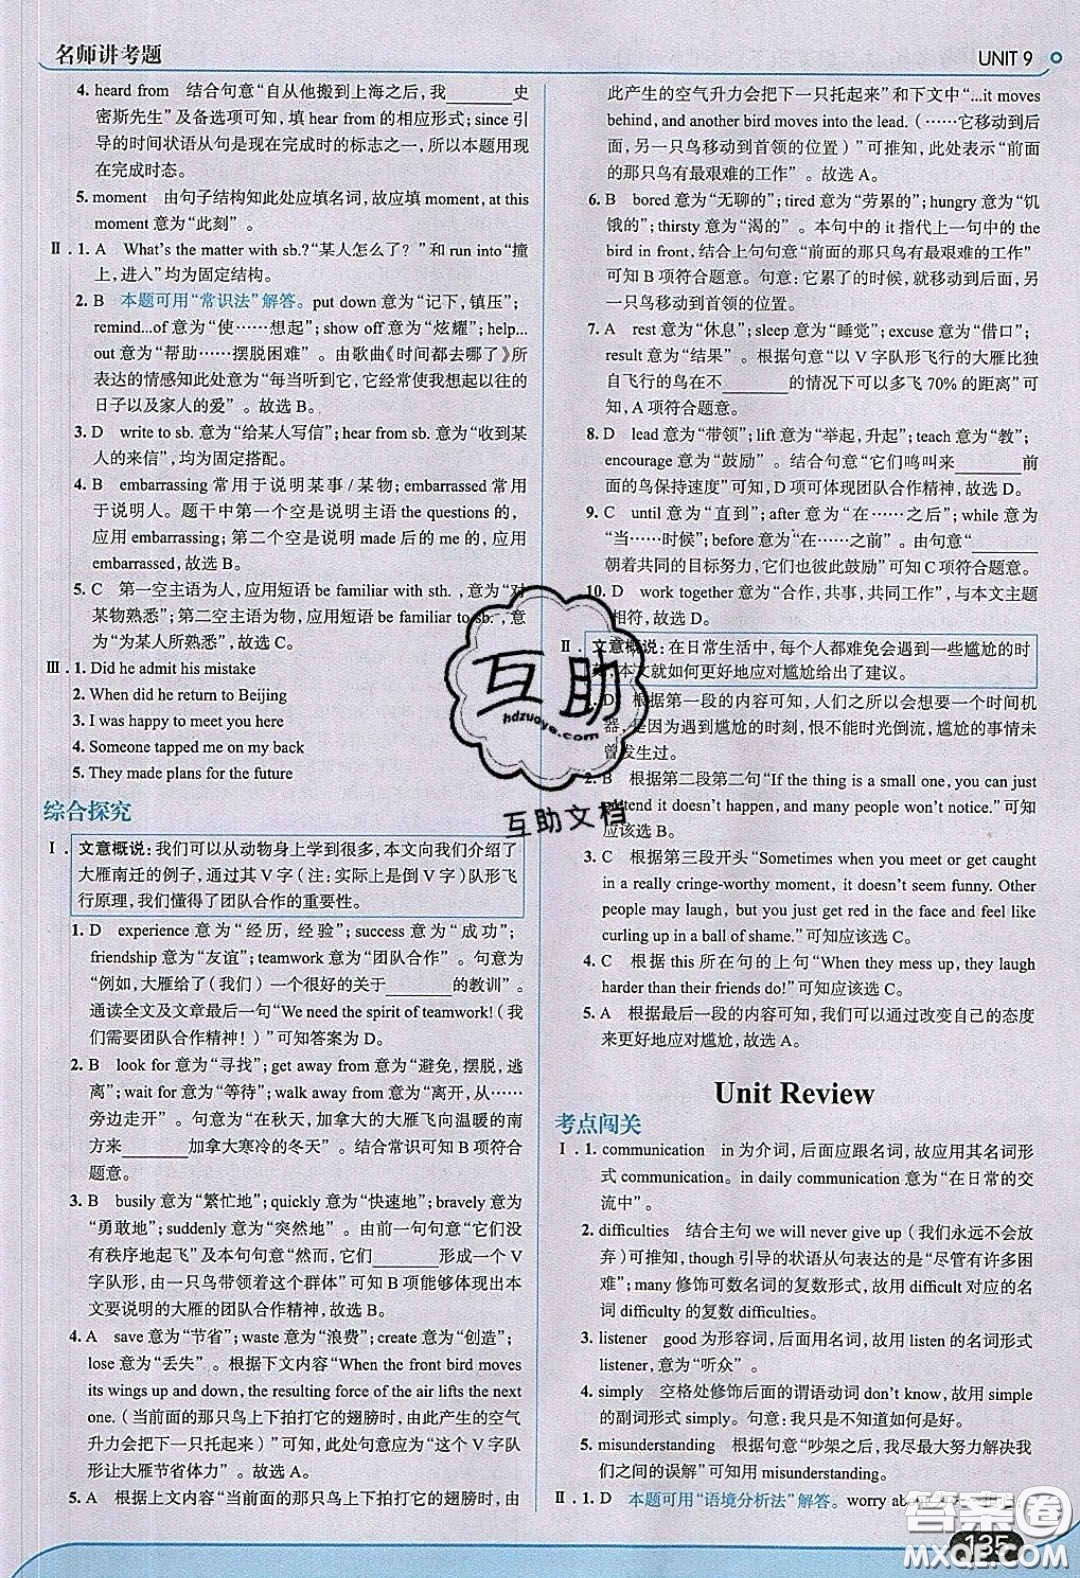 名师讲考题
UNIT 9
4. heard from 结合句意“自从他搬到上海之后,我______史
密斯先生”及备选项可知,填 hear from 的相应形式;since 引
导的时间状语从句是现在完成时的标志之一,所以本题用现
在完成时态。
5. moment 由句子结构知此处应填名词,故应填 moment, at this
moment 意为“此刻”。
Ⅱ. 1. A What's the matter with sb.?“某人怎么了?”和 run into“撞
上,进入”均为固定结构。
2. B 本题可用“常识法”解答。put down 意为“记下,镇压”;
remind...of 意为“使……想起”;show off 意为“炫耀”;help...
out 意为“帮助……摆脱困难”。由歌曲《时间都去哪了》所
表达的情感知此处意为“每当听到它,它经常使我想起以往的
日子以及家人的爱”。故选 B。
3. D write to sb. 意为“给某人写信”;hear from sb. 意为“收到某
人的来信”,均为固定搭配。
4. B embarrassing 常用于说明某事/某物;embarrassed 常用
于说明人。题干中第一个空是说明主语 the questions 的,
应用 embarrassing;第二个空是说明 made 后的 me 的,应用
embarrassed,故选 B。
5. C 第一空主语为人,应用短语 be familiar with sth. ,意为“对
某物熟悉”;第二空主语为物,应用短语 be familiar to sb. ,意
为“为某人所熟悉”,故选 C。
Ⅲ. 1. Did he admit his mistake
2. When did he return to Beijing
3. I was happy to meet you here
4. Someone tapped me on my back
5. They made plans for the future
综合探究
Ⅰ. 文意概说:我们可以从动物身上学到很多,本文向我们介绍了
大雁南迁的例子,通过其 V 字(注:实际上是倒 V 字)队形飞
行原理,我们懂得了团队合作的重要性。
1. D experience 意为“经历,经验”;success 意为“成功”;
friendship 意为“友谊”;teamwork 意为“团队合作”。句意为
“例如,大雁给了(我们)一个很好的关于______的教训”。
通读全文及文章最后一句“We need the spirit of teamwork!(我
们需要团队合作精神!)”可知答案为 D。
2. B look for 意为“寻找”;get away from 意为“避免,摆脱,远
离”;wait for 意为“等待”;walk away from 意为“离开,从……
旁边走开”。句意为“在秋天,加拿大的大雁飞向温暖的南
方来______加拿大寒冷的冬天”。结合常识可知 B 项符合
题意。
3. B busily 意为“繁忙地”;quickly 意为“快速地”;bravely 意为
“勇敢地”;suddenly 意为“突然地”。由前一句句意“它们没
有秩序地起飞”及本句句意“然而,它们______形成一个 V
字队形,由一只鸟带领着这个群体”可知 B 项能够体现出本
文要说明的大雁的团队合作精神,故选 B。
4. A save 意为“节省”;waste 意为“浪费”;create 意为“创造”;
lose 意为“丢失”。根据下文内容“When the front bird moves
its wings up and down, the resulting force of the air lifts the next
one.(当前面的那只鸟上下拍打它的翅膀时,由此产生的空气
升力会把下一只托起来)”可知,此处句意应为“这个 V 字队
形让大雁节省体力”。故选 A。
5. A 根据上文内容“当前面的那只鸟上下拍打它的翅膀时,由
此产生的空气升力会把下一只托起来”和下文中“...it moves
behind, and another bird moves into the lead.(……它移动到后
面,另一只鸟移动到首领的位置)”可推知,此处表示“前面
的那只鸟有最艰难的工作”。故选 A。
6. B bored 意为“无聊的”;tired 意为“劳累的”;hungry 意为“饥
饿的”;thirsty 意为“渴的”。本句中的 it 指代上一句中的 the
bird in front,结合上句句意“前面的那只鸟有最艰难的工作”
可知 B 项符合题意。句意:它累了的时候,就移动到后面,另
一只鸟移动到首领的位置。
7. A rest 意为“休息”;sleep 意为“睡觉”;excuse 意为“借口”;
result 意为“结果”。根据句意“以 V 字队形飞行的大雁比独
自飞行的鸟在不______的情况下可以多飞 70% 的距离”可
知,A 项符合题意。
8. D lead 意为“带领”;lift 意为“举起,升起”;teach 意为“教”;
encourage 意为“鼓励”。结合句意“它们鸣叫来______前
面的鸟保持速度”可知,D 项可体现团队合作精神,故选 D。
9. C until 意为“直到”;after 意为“在……之后”;while 意为
“当……时候”;before 意为“在……之前”。由句意“______
朝着共同的目标努力,它们也彼此鼓励”可知 C 项符合题意。
10. D work together 意为“合作,共事,共同工作”,与本文主题
相符,故选 D。
Ⅱ. 文意概说:在日常生活中,每个人都难免会遇到一些尴尬的时
刻,本文就如何更好地应对尴尬给出了建议。
1. D 根据第一段的内容可知,人们之所以会想要一个时间机
器,是因为遇到尴尬的时刻,恨不能时光倒流,尴尬的事情未
曾发生过。
2. B 根据第二段第二句“If the thing is a small one, you can just
pretend it doesn't happen, and many people won't notice.”可知
应该选 B。
3. C 根据第三段开头“Sometimes when you meet or get caught
in a really cringe-worthy moment, it doesn't seem funny. Other
people may laugh, but you just get red in the face and feel like
curling up in a ball of shame.”可知应该选 C。
4. C 根据 this 所在句的上句“When they mess up, they laugh
harder than their friends do!”可知应该选 C。
5. A 根据最后一段的内容可知,我们可以通过改变自己的态度
来更好地应对尴尬,故选 A。
Unit Review
考点闯关
Ⅰ. 1. communication in 为介词,后面应跟名词,故应用其名词形
式 communication。in daily communication 意为“在日常的交
流中”。
2. difficulties 结合主句 we will never give up(我们永远不会放
弃)可推知,though 引导的状语从句表达的是“尽管有许多困
难”;many 修饰可数名词的复数形式,故用 difficult 对应的名
词 difficulty 的复数 difficulties。
3. listener good 为形容词,后面用名词,故用 listen 的名词形式
listener,意为“听众”。
4. simply 空格处修饰后面的谓语动词 don't know,故用 simple
的副词形式 simply。句意:我只是不知道如何是好。
5. misunderstanding 根据句意“吵架之后,我尽最大努力解决我
们之间的误解”可知用 misunderstanding。
Ⅱ. 1. D 本题可用“语境分析法”解答。worry ab
135
互助
hdzuoye.com
互助文档
答案圈
MXQE.COM